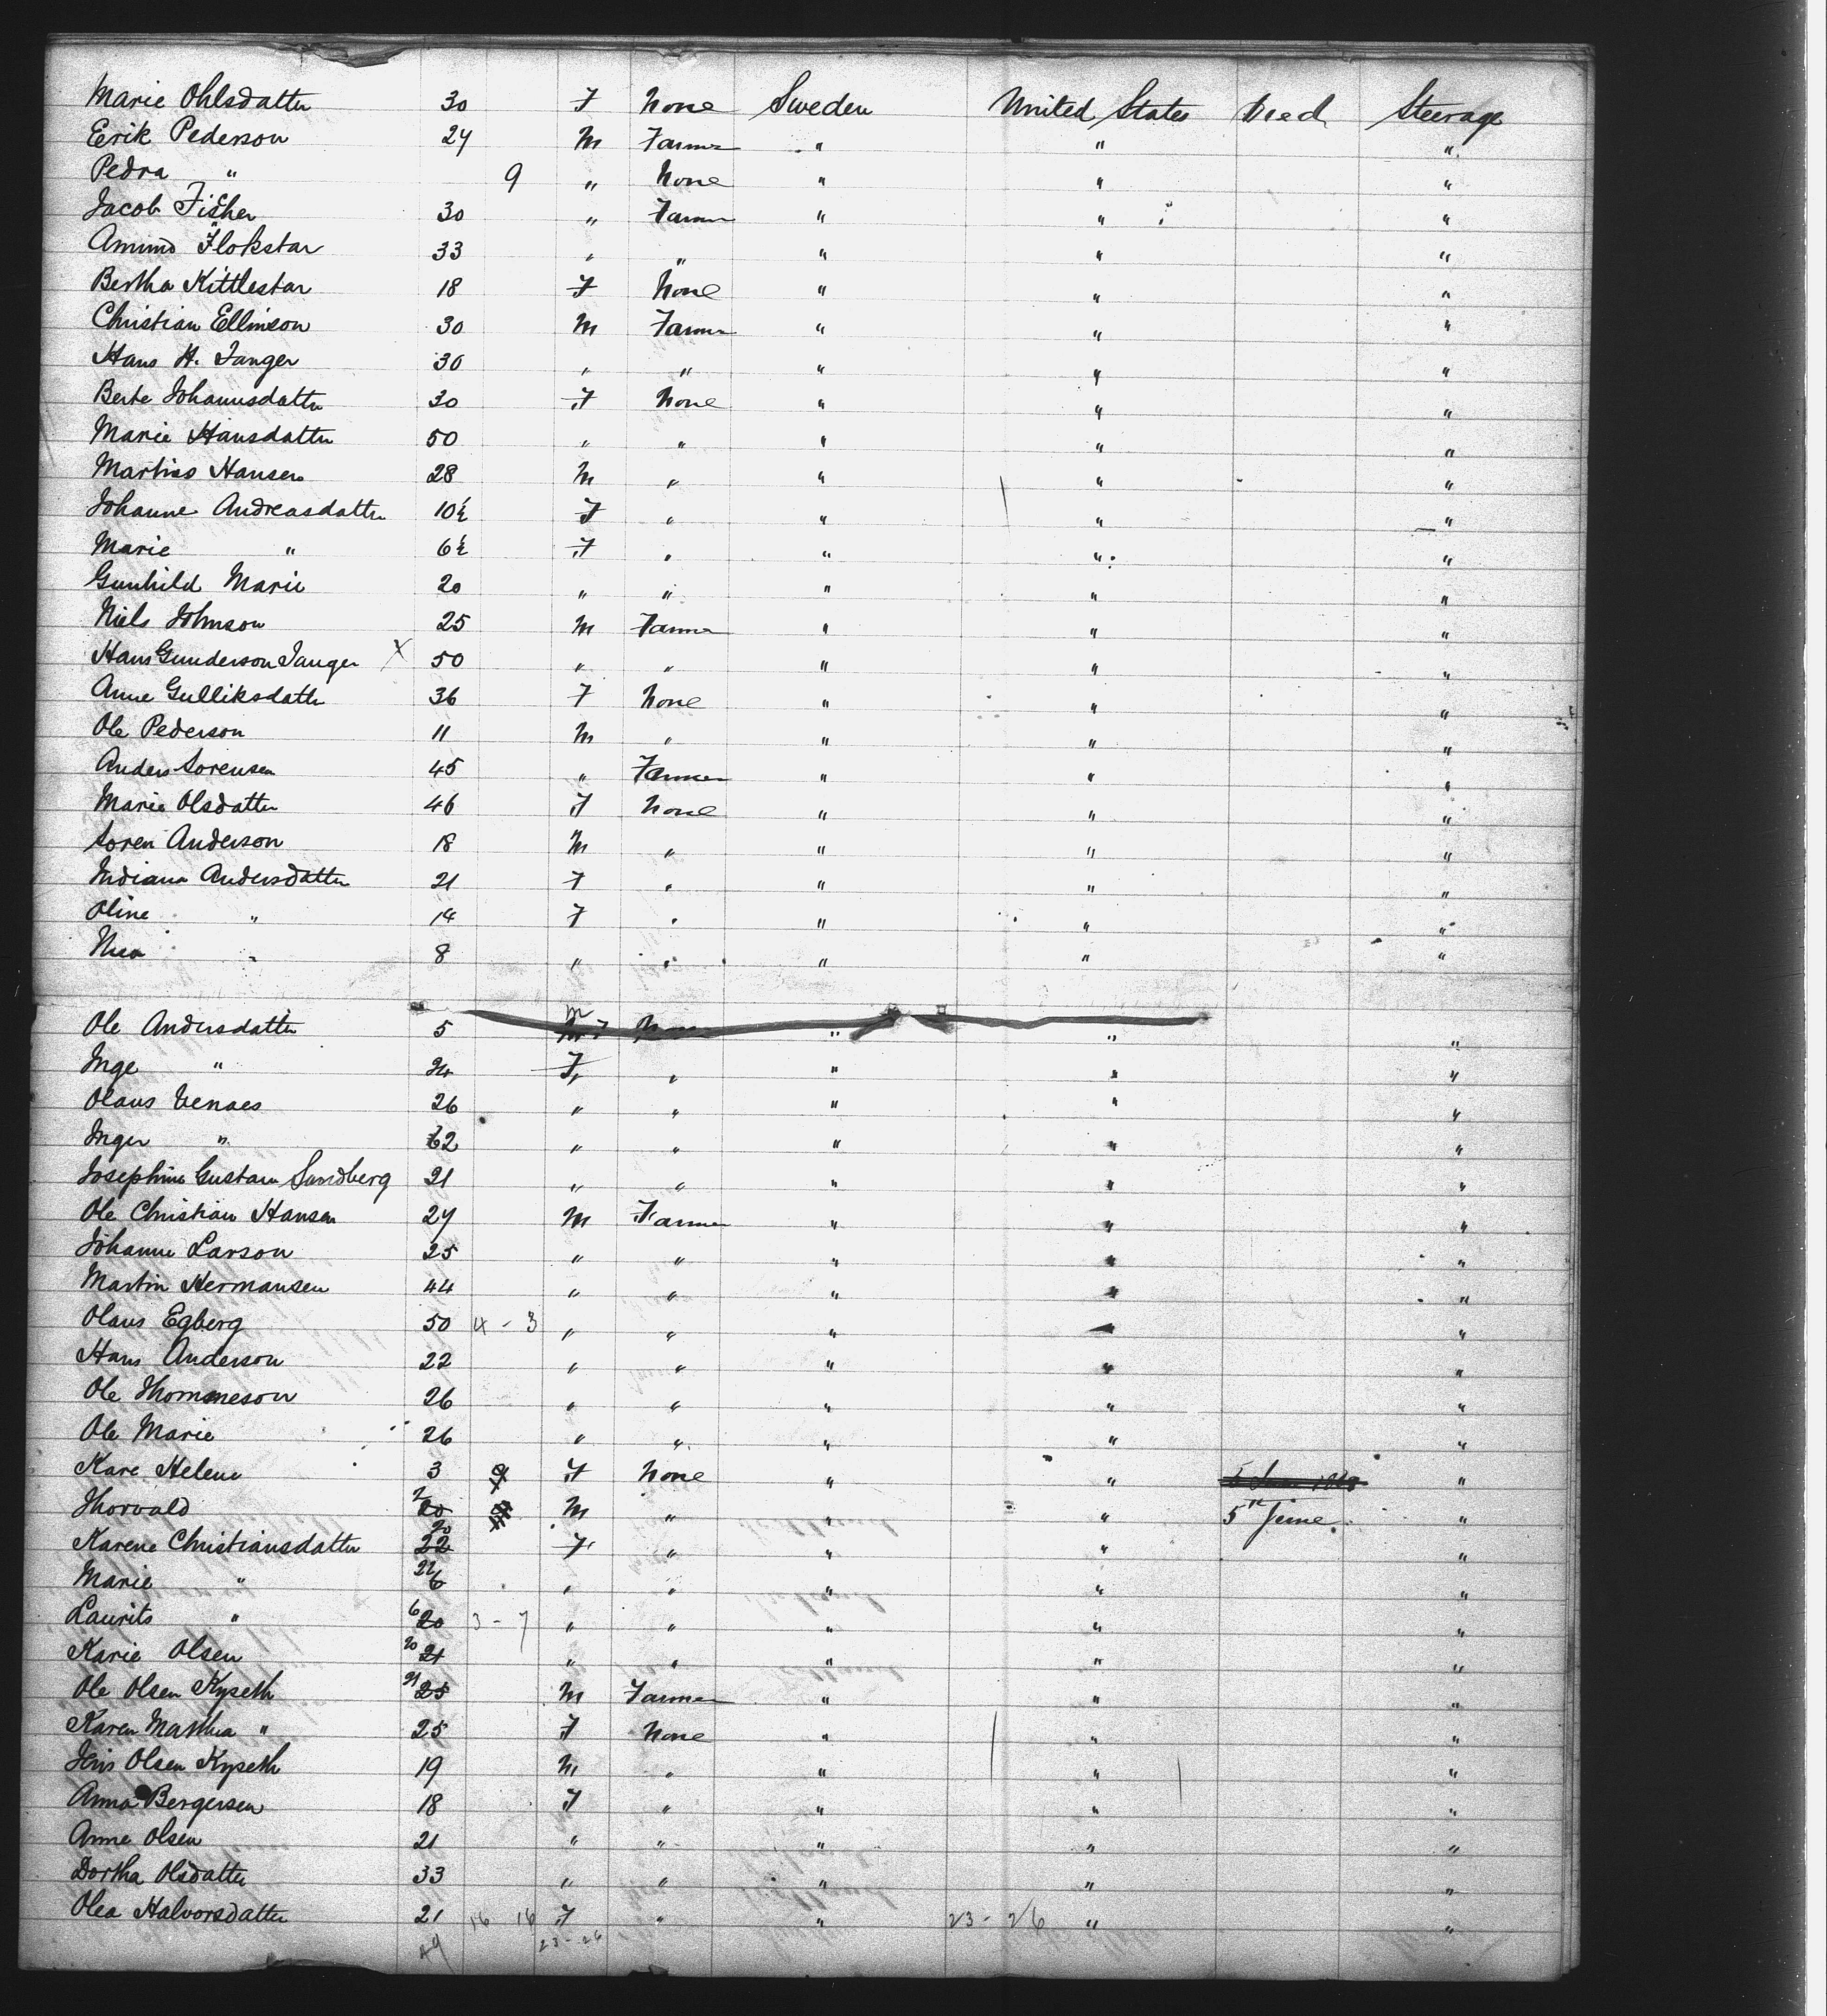 Marie Ohlsdatter 30 F None Sweden United States Died Steerage
Erik Pederson 24 M Farmer " " "
Pedra " 9 " None " " "
Jacob Fisher 30 " Farmer " " "
Amund Flokstar 33 " " " " "
Bertha Kittlestar 18 F None " " "
Christian Ellinson 30 M Farmer " " "
Hans H. Tanger 30 " " " " "
Berte Johannsdatter 30 F None " " "
Marie Hansdatter 50 " " " " "
Martius Hansen 28 M " " " "
Johanne Andreasdatter 10½ F " " " "
Marie " 6½ F " " " "
Gunhild Marie 20 " " " " "
Niels Johnson 25 M Farmer " " "
Hans Gunderson Tanger X 50 " " " " "
Anne Gulliksdatter 36 F None " " "
Ole Pederson 11 M " " " "
Anders Sorensen 45 " Farmer " " "
Marie Olsdatter 46 F None " " "
Soren Anderson 18 M " " " "
Indiana Andersdatter 21 F " " " "
Oline " 14 F " " " "
" 8 " " " " "
Ole Andersdatter 5 M " " "
Inge " F " " " "
Olaus Venaes 26 " " " " "
Inger " 62 " " " " "
Josephine Gustava Sandberg 21 " " " " "
Ole Christian Hansen 27 M Farmer " " "
Johanne Larson 25 " " " " "
Martin Hermansen 44 " " " " "
Olaus Egberg 50 4 - 3 " " " " "
Hans Anderson 22 " " " " "
Ole Thommeson 26 " " " " "
Ole Marie 26 " " " " "
Kare Helene 3 F None " " "
Thorvald 2 20 M " " " 5" June "
Karene Christiansdatter 20 22 F " " " "
Marie " 22 6 " " " " "
Laurits " 6 20 3 - 7 " " " " "
Karie Olsen 20 21 " " " " "
Ole Olsen Kyseth 21 25 M Farmer " " "
Karen Mathea " 25 F None " " "
Jens Olsen Kyseth 19 M " " " "
Anna Bergersen 18 F " " " "
Anne Olsen 21 " " " " "
Dortha Olsdatter 33 " " " " "
Olea Halvorsdatter 21 16 16 F " " 23 - 26 " "
49 23 - 26